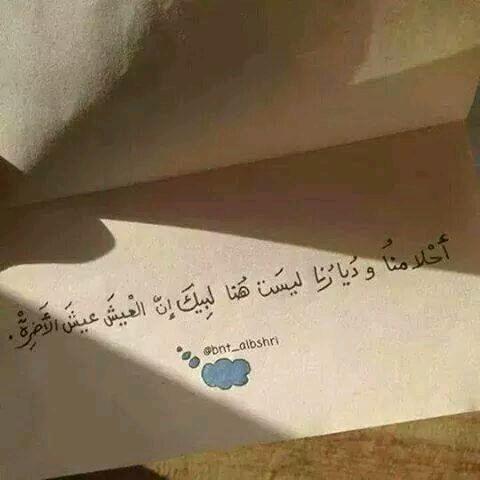 أَحْلامنُا و دُيارُنا ليسَت هُنا لبيكَ إنّ الْعيشَ عيشَ الأَخرِةْ.
@bnt_albshri